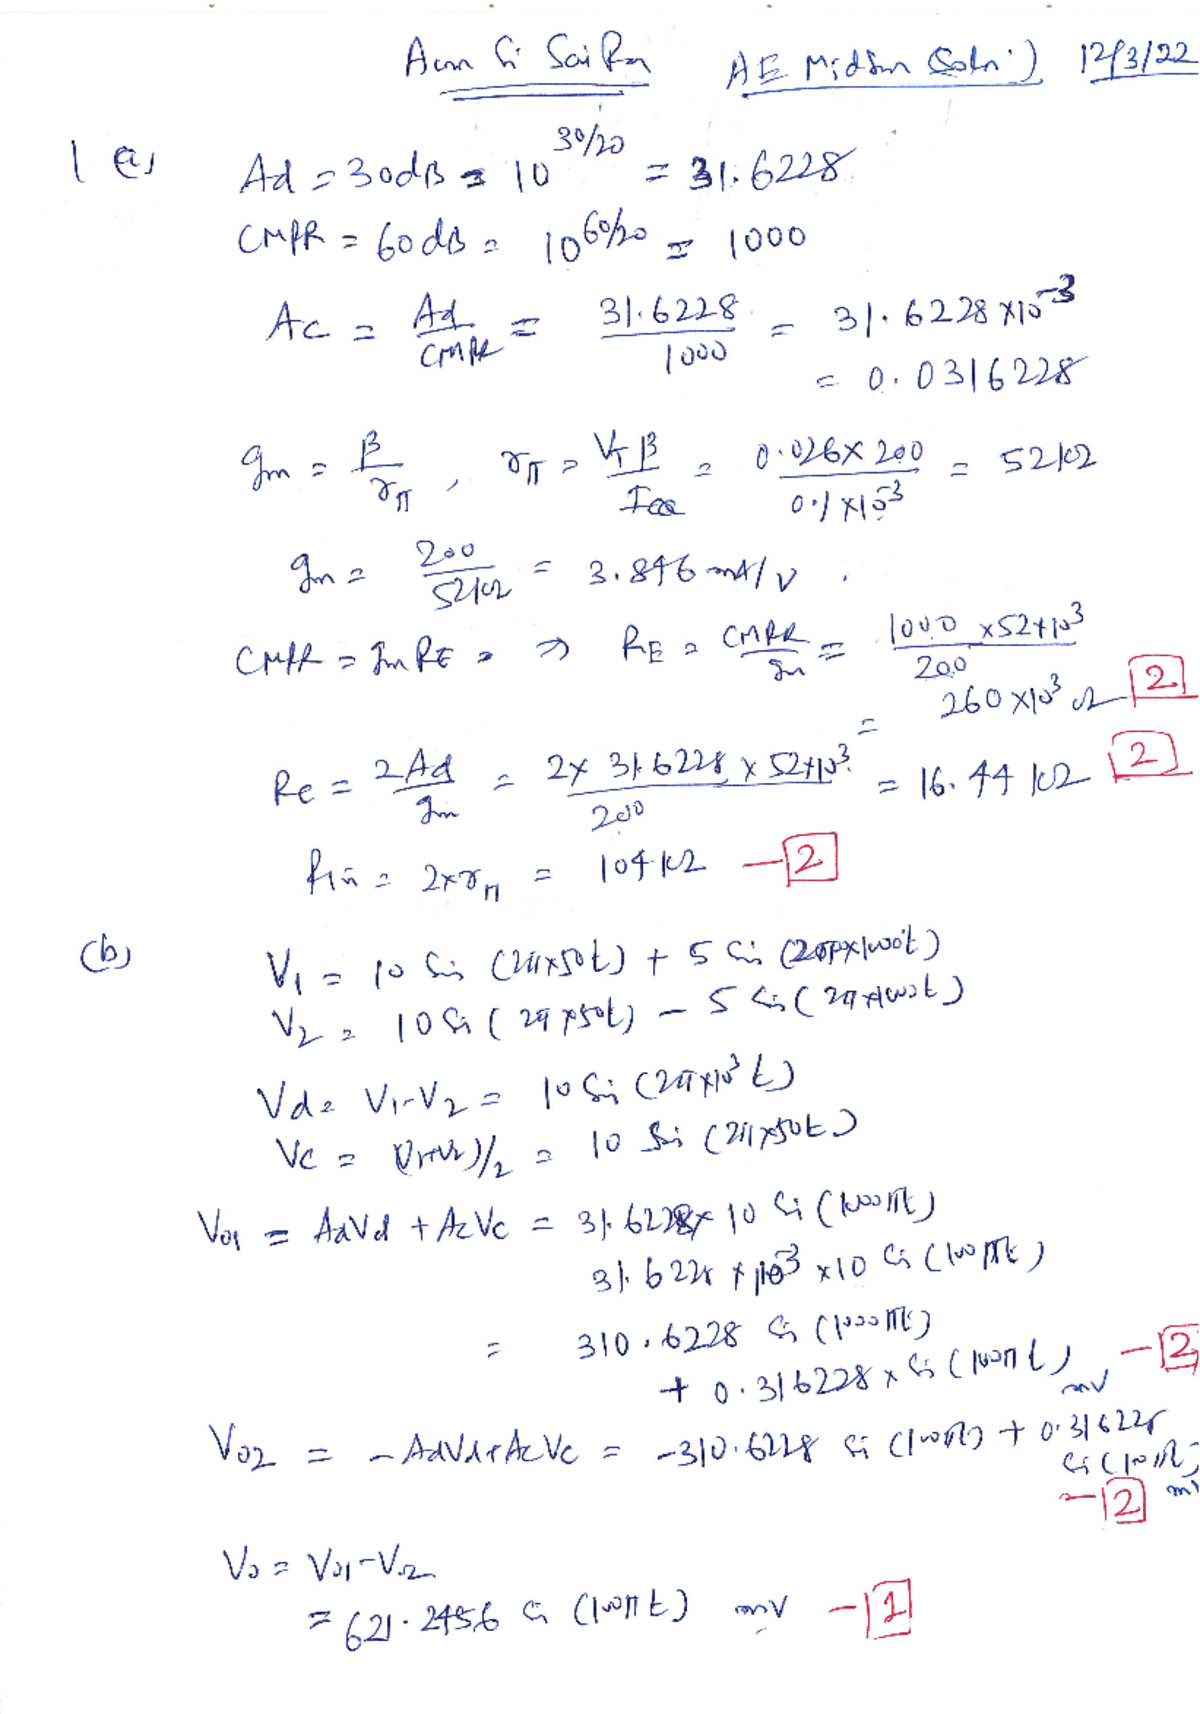 Aum Sri Sai Ram AE Midsem (Soln:) 12/3/22
1 (a) Ad = 30dB = 10^30/20 = 31.6228
CMRR = 60dB = 10^60/20 = 1000
Ac = Ad/CMRR = 31.6228/1000 = 31.6228 x10^-3
= 0.0316228
gm = β/rπ, rπ = VTβ/ICQ = 0.026 x 200/0.1 x10^-3 = 52kΩ
gm = 200/52kΩ = 3.846 mA/V.
CMRR = gm RE = ⇒ RE = CMRR/gm = 1000 x 52x10^3/200
= 260 x10^3 Ω 2
Rc = 2Ad/gm = 2x 31.6228 x 52x10^3/200 = 16.44 kΩ 2
Rin = 2xrπ = 104kΩ - 2
(b) V1 = 10 Sin (2πx50t) + 5 Sin (2πx1000t)
V2 = 10 Sin (2π x50t) - 5 Sin (2πx1000t)
Vd = V1-V2 = 10 Sin (2πx10^3 t)
Vc = (V1+V2)/2 = 10 Sin (2πx50t)
V01 = AdVd + AcVc = 31.6228x 10 Sin (1000πt)
31.6228 x 10^-3 x10 Sin (100πt)
= 310.6228 Sin (1000πt)
+ 0.316228 x Sin (100πt) mV - 2
V02 = -AdVd+AcVc = -310.6228 Sin (100πt) + 0.316228
Sin (100πt) mV
- 2
V0 = V01-V02
= 621.2456 Sin (100πt) mV - 1